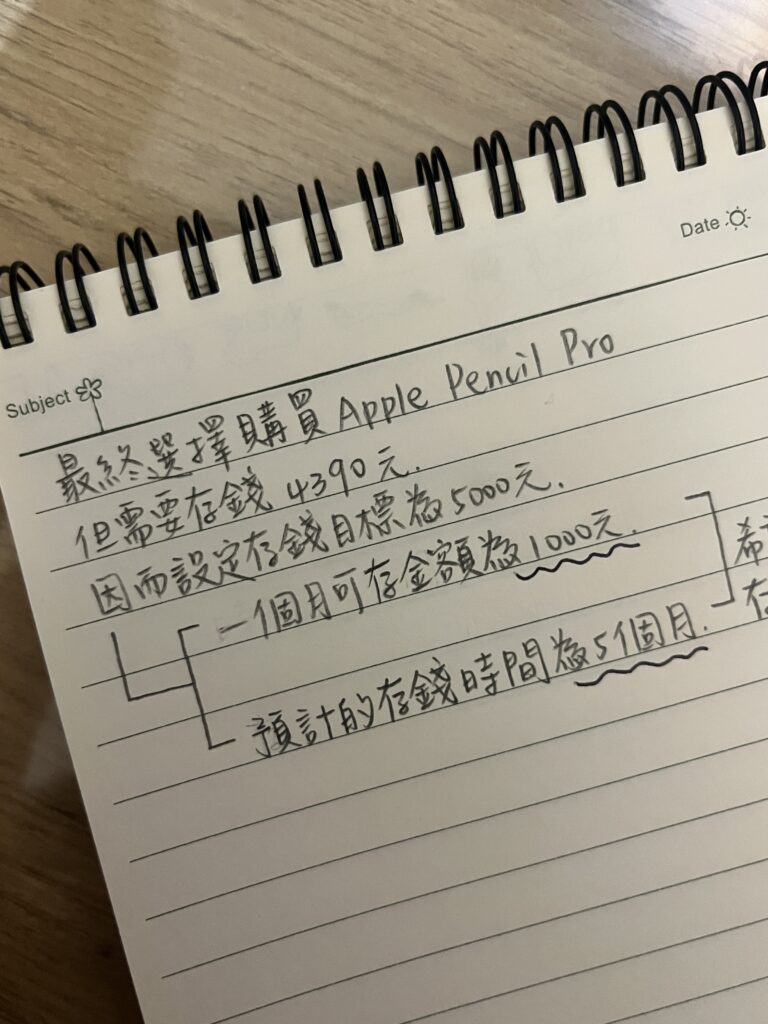 Date
Subject
最終選擇購買 Apple Pencil Pro
但需要存錢 4390元.
因而設定存錢目標為5000元.
一個月可存金額為1000元.
預計的存錢時間為5個月.
希
存